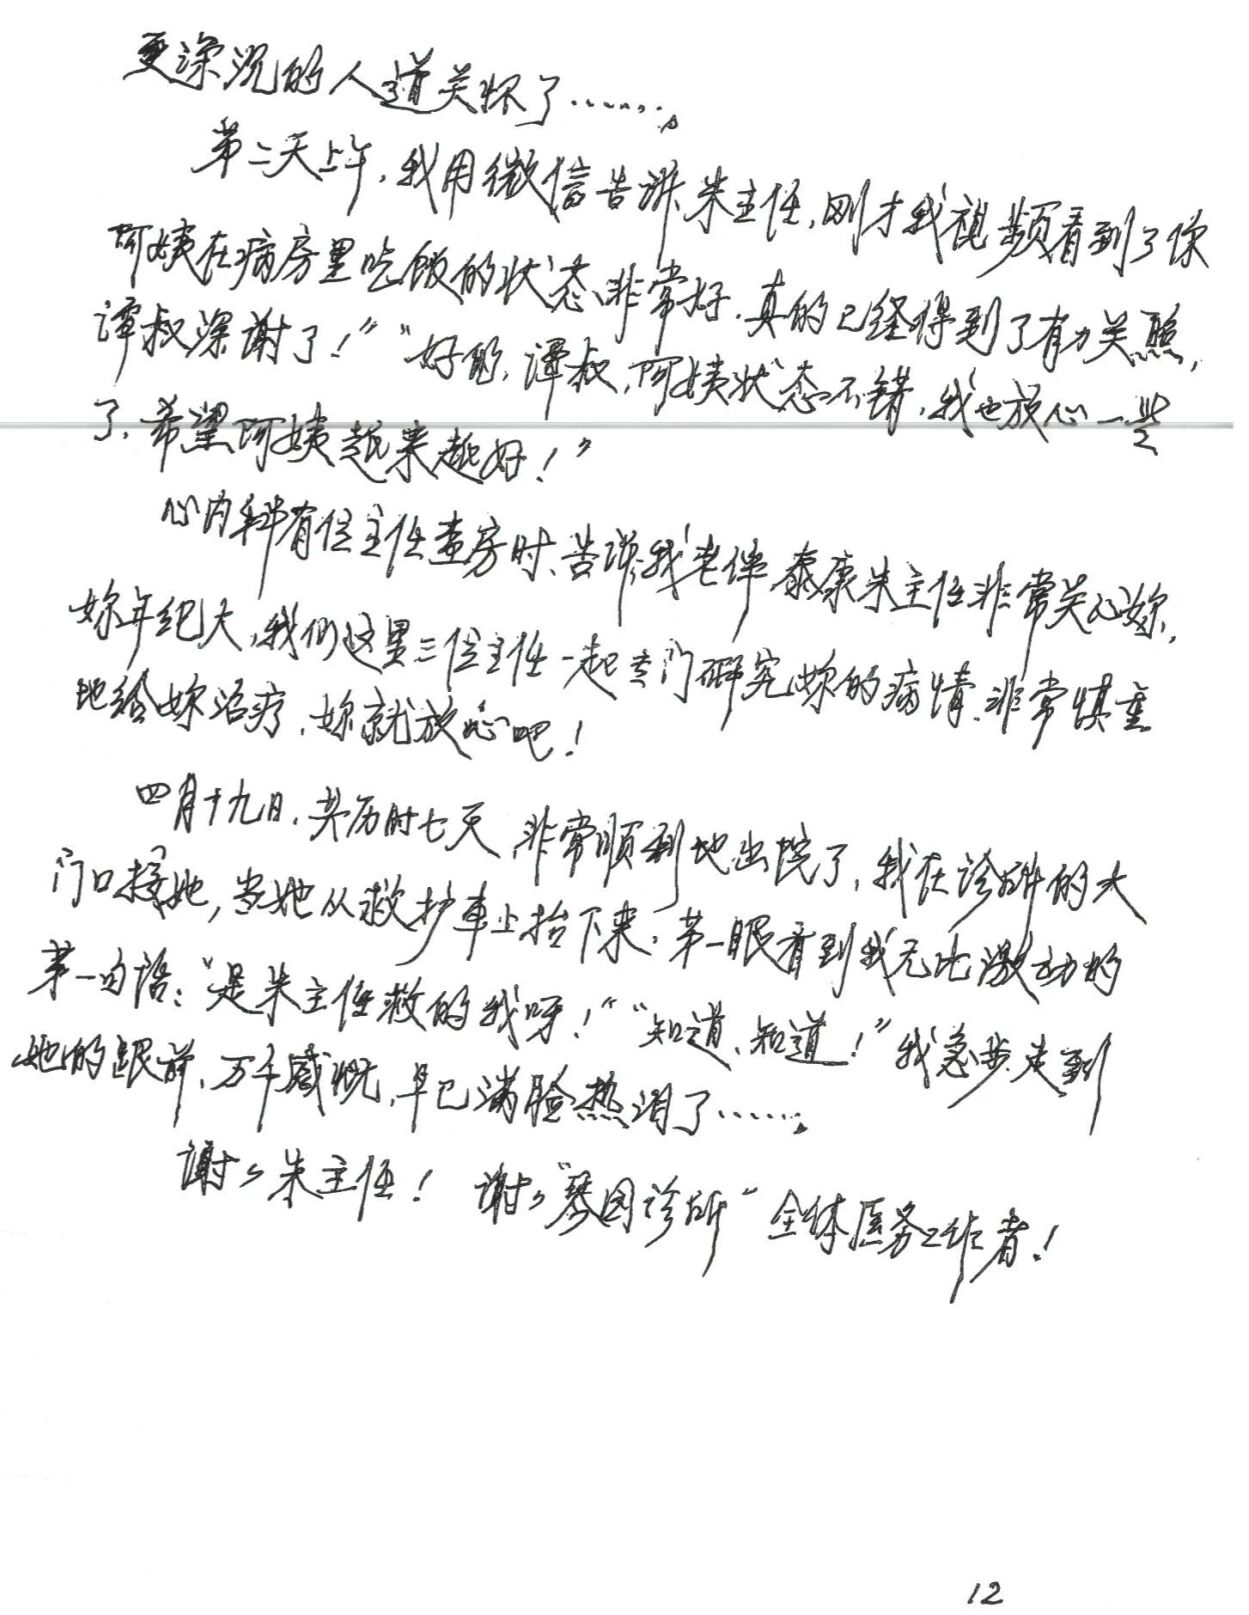 更深沉的人道关怀了……。
第二天上午，我用微信告诉朱主任，刚才我视频看到了你
阿姨在病房里吃饭的状态、非常好．真的已经得到了有力关照，
谭叔深谢了！“ “好的，谭叔，阿姨状态不错，我也放心一些
了，希望阿姨越来越好！”
心内科有位主任查房时、告诉我老伴 泰康朱主任非常关心妳，
妳年纪大，我们这里三位主任一起专门研究妳的病情、非常慎重
地给妳治疗，妳就放心吧！
四月十九日．共历时七天 非常顺利地出院了，我在诊所的大
门口接她，当她从救护车上抬下来，第一眼看到我无比激动的
第一句话：“是朱主任救的我呀！“ “知道、知道！”我急步走到
她的跟前、万千感慨，早已满脸热泪了……。
谢々朱主任！ 谢々“琴园诊所“ 全体医务工作者！
12